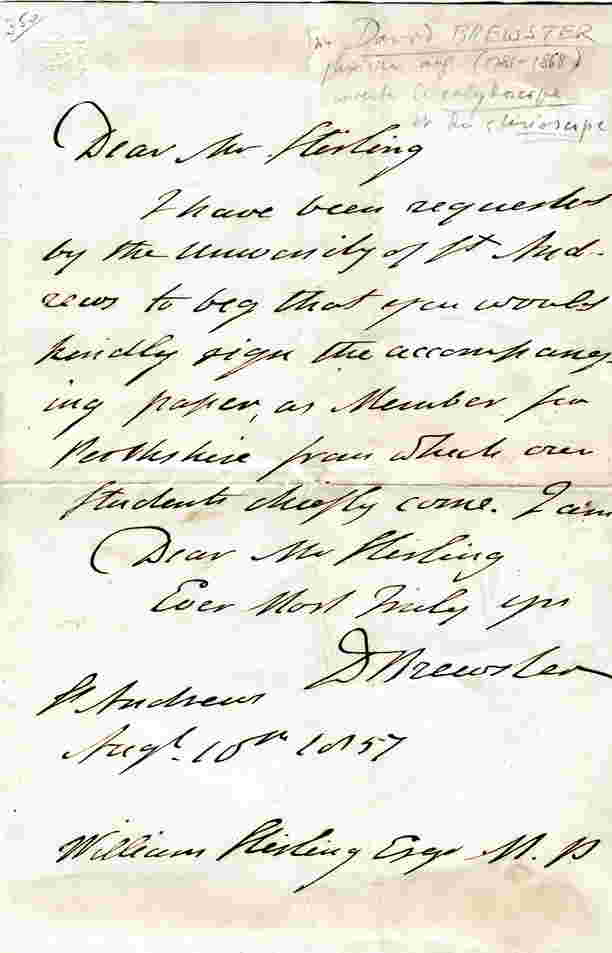 350
Sir David BREWSTER
(1781-1868)
Dear Mr Stirling
I have been requested
by the University of St And-
rews to beg that you would
kindly sign the accompany-
ing paper, as Member for
Perthshire from which our
Students chiefly come. I am
Dear Mr Stirling
Ever Most Truly yrs
D Brewster
St Andrews
Augt. 10th 1857
William Stirling Esqr M. P